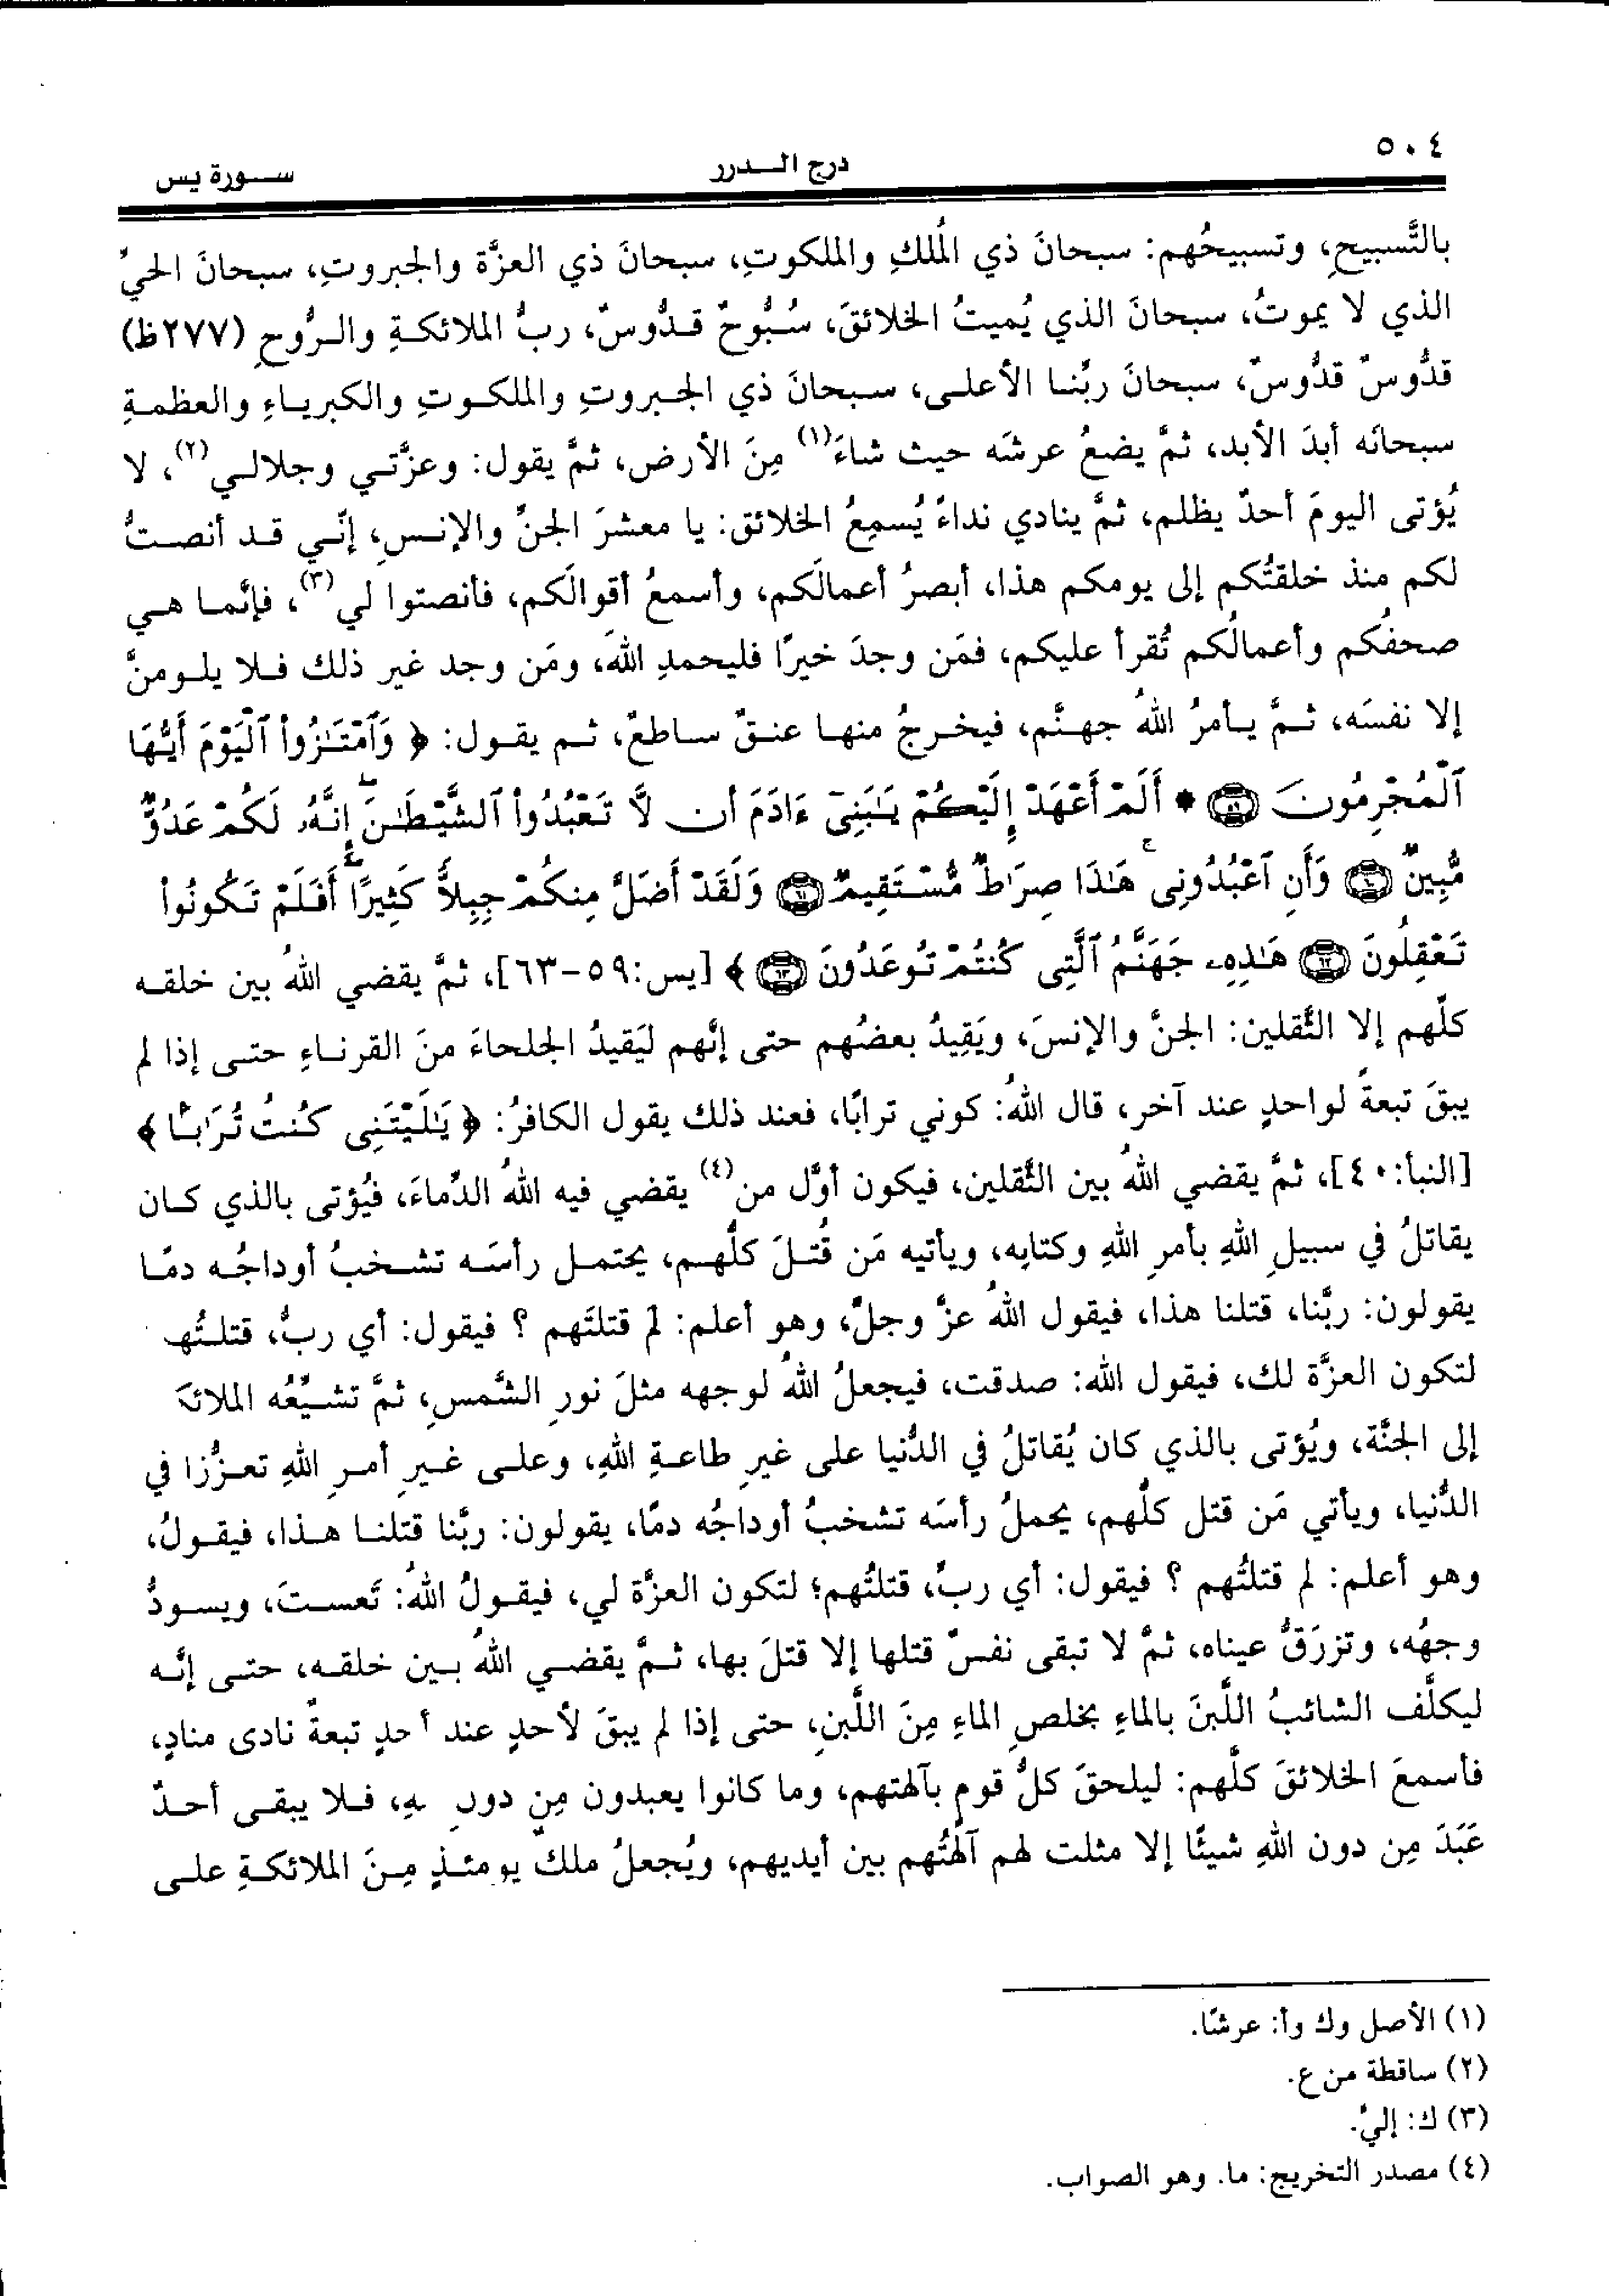 ٥٠٤
درج الـــدرر
ســـورة يس
بالتَّسبيحِ، وتسبيحُهم: سبحانَ ذي المُلكِ والملكوتِ، سبحانَ ذي العزَّة والجبروتِ، سبحانَ الحيِّ
الذي لا يموتُ، سبحانَ الذي يُميتُ الخلائقَ، سُبُّوحٌ قدُّوسٌ، ربُّ الملائكةِ والرُّوحِ (٢٧٧ظ)
قدُّوسٌ قدُّوسٌ، سبحانَ ربِّنا الأعلى، سبحانَ ذي الجبروتِ والملكوتِ والكبرياءِ والعظمةِ
سبحانَه أبدَ الأبد، ثمَّ يضعُ عرشَه حيث شاءَ(١) مِنَ الأرض، ثمَّ يقول: وعزَّتي وجلالي(٢)، لا
يُؤتى اليومَ أحدٌ يظلم، ثمَّ ينادي نداءً يُسمِعُ الخلائق: يا معشرَ الجنِّ والإنسِ، إنّي قد أنصتُّ
لكم منذ خلقتُكم إلى يومكم هذا، أبصرُ أعمالَكم، وأسمعُ أقوالَكم، فأنصتوا لي(٣)، فإنَّما هي
صحفُكم وأعمالُكم تُقرأ عليكم، فمَن وجدَ خيرًا فليحمدِ اللهَ، ومَن وجد غير ذلك فلا يلومنَّ
إلا نفسَه، ثمَّ يأمرُ اللهُ جهنَّم، فيخرجُ منها عنقٌ ساطعٌ، ثم يقول: ﴿ وَٱمْتَـٰزُوا۟ ٱلْيَوْمَ أَيُّهَا
ٱلْمُجْرِمُونَ ٥٩ * أَلَمْ أَعْهَدْ إِلَيْكُمْ يَـٰبَنِىٓ ءَادَمَ أَن لَّا تَعْبُدُوا۟ ٱلشَّيْطَـٰنَ ۖ إِنَّهُۥ لَكُمْ عَدُوٌّ
مُّبِينٌ ٦٠ وَأَنِ ٱعْبُدُونِى ۚ هَـٰذَا صِرَٰطٌ مُّسْتَقِيمٌ ٦١ وَلَقَدْ أَضَلَّ مِنكُمْ جِبِلًّا كَثِيرًا ۖ أَفَلَمْ تَكُونُوا۟
تَعْقِلُونَ ٦٢ هَـٰذِهِۦ جَهَنَّمُ ٱلَّتِى كُنتُمْ تُوعَدُونَ ٦٣ ﴾ [يس:٥٩-٦٣]، ثمَّ يقضي اللهُ بين خلقه
كلّهم إلا الثَّقلين: الجنَّ والإنسَ، ويَقِيدُ بعضُهم حتى إنَّهم ليَقيدُ الجلحاءَ منَ القرناءِ حتى إذا لم
يبقَ تبعةً لواحدٍ عند آخر، قال اللهُ: كوني ترابًا، فعند ذلك يقول الكافرُ: ﴿ يَـٰلَيْتَنِى كُنتُ تُرَٰبًا ﴾
[النبأ:٤٠]، ثمَّ يقضي اللهُ بين الثَّقلين، فيكون أوَّل من(٤) يقضي فيه اللهُ الدِّماءَ، فيُؤتى بالذي كان
يقاتلُ في سبيلِ اللهِ بأمرِ اللهِ وكتابِه، ويأتيه مَن قُتلَ كلُّهم، يحتمل رأسَه تشخبُ أوداجُه دمًا
يقولون: ربَّنا، قتلنا هذا، فيقول اللهُ عزَّ وجلَّ، وهو أعلم: لم قتلتَهم ؟ فيقول: أي ربِّ، قتلتُه
لتكون العزَّة لك، فيقول الله: صدقت، فيجعلُ اللهُ لوجهه مثلَ نورِ الشَّمسِ، ثمَّ تشيِّعُه الملائك
إلى الجنَّة، ويُؤتى بالذي كان يُقاتلُ في الدُّنيا على غيرِ طاعةِ اللهِ، وعلى غيرِ أمرِ اللهِ تعزُّزا في
الدُّنيا، ويأتي مَن قتل كلُّهم، يحملُ رأسَه تشخبُ أوداجُه دمًا، يقولون: ربَّنا قتلنا هذا، فيقولُ،
وهو أعلم: لم قتلتُهم ؟ فيقول: أي ربِّ، قتلتُهم؛ لتكون العزَّة لي، فيقولُ اللهُ: تَعستَ، ويسودُّ
وجهُه، وتزرَقُّ عيناه، ثمَّ لا تبقى نفسٌ قتلها إلا قتلَ بها، ثمَّ يقضي اللهُ بين خلقه، حتى إنَّه
ليكلَّف الشائبُ اللَّبنَ بالماءِ بخلصِ الماءِ مِنَ اللَّبنِ، حتى إذا لم يبقَ لأحدٍ عند أحدٍ تبعةً نادى منادٍ،
فأسمعَ الخلائقَ كلَّهم: ليلحقَ كلُّ قومٍ بآلهتهم، وما كانوا يعبدون مِن دون ـهِ، فلا يبقى أحدٌ
عَبَدَ مِن دون اللهِ شيئًا إلا مثلت لهم آلهتُهم بين أيديهم، ويُجعلُ ملكٌ يومئذٍ مِنَ الملائكةِ على
(١) الأصل وك وأ: عرشًا.
(٢) ساقطة من ع.
(٣) ك: إليّ.
(٤) مصدر التخريج: ما. وهو الصواب.